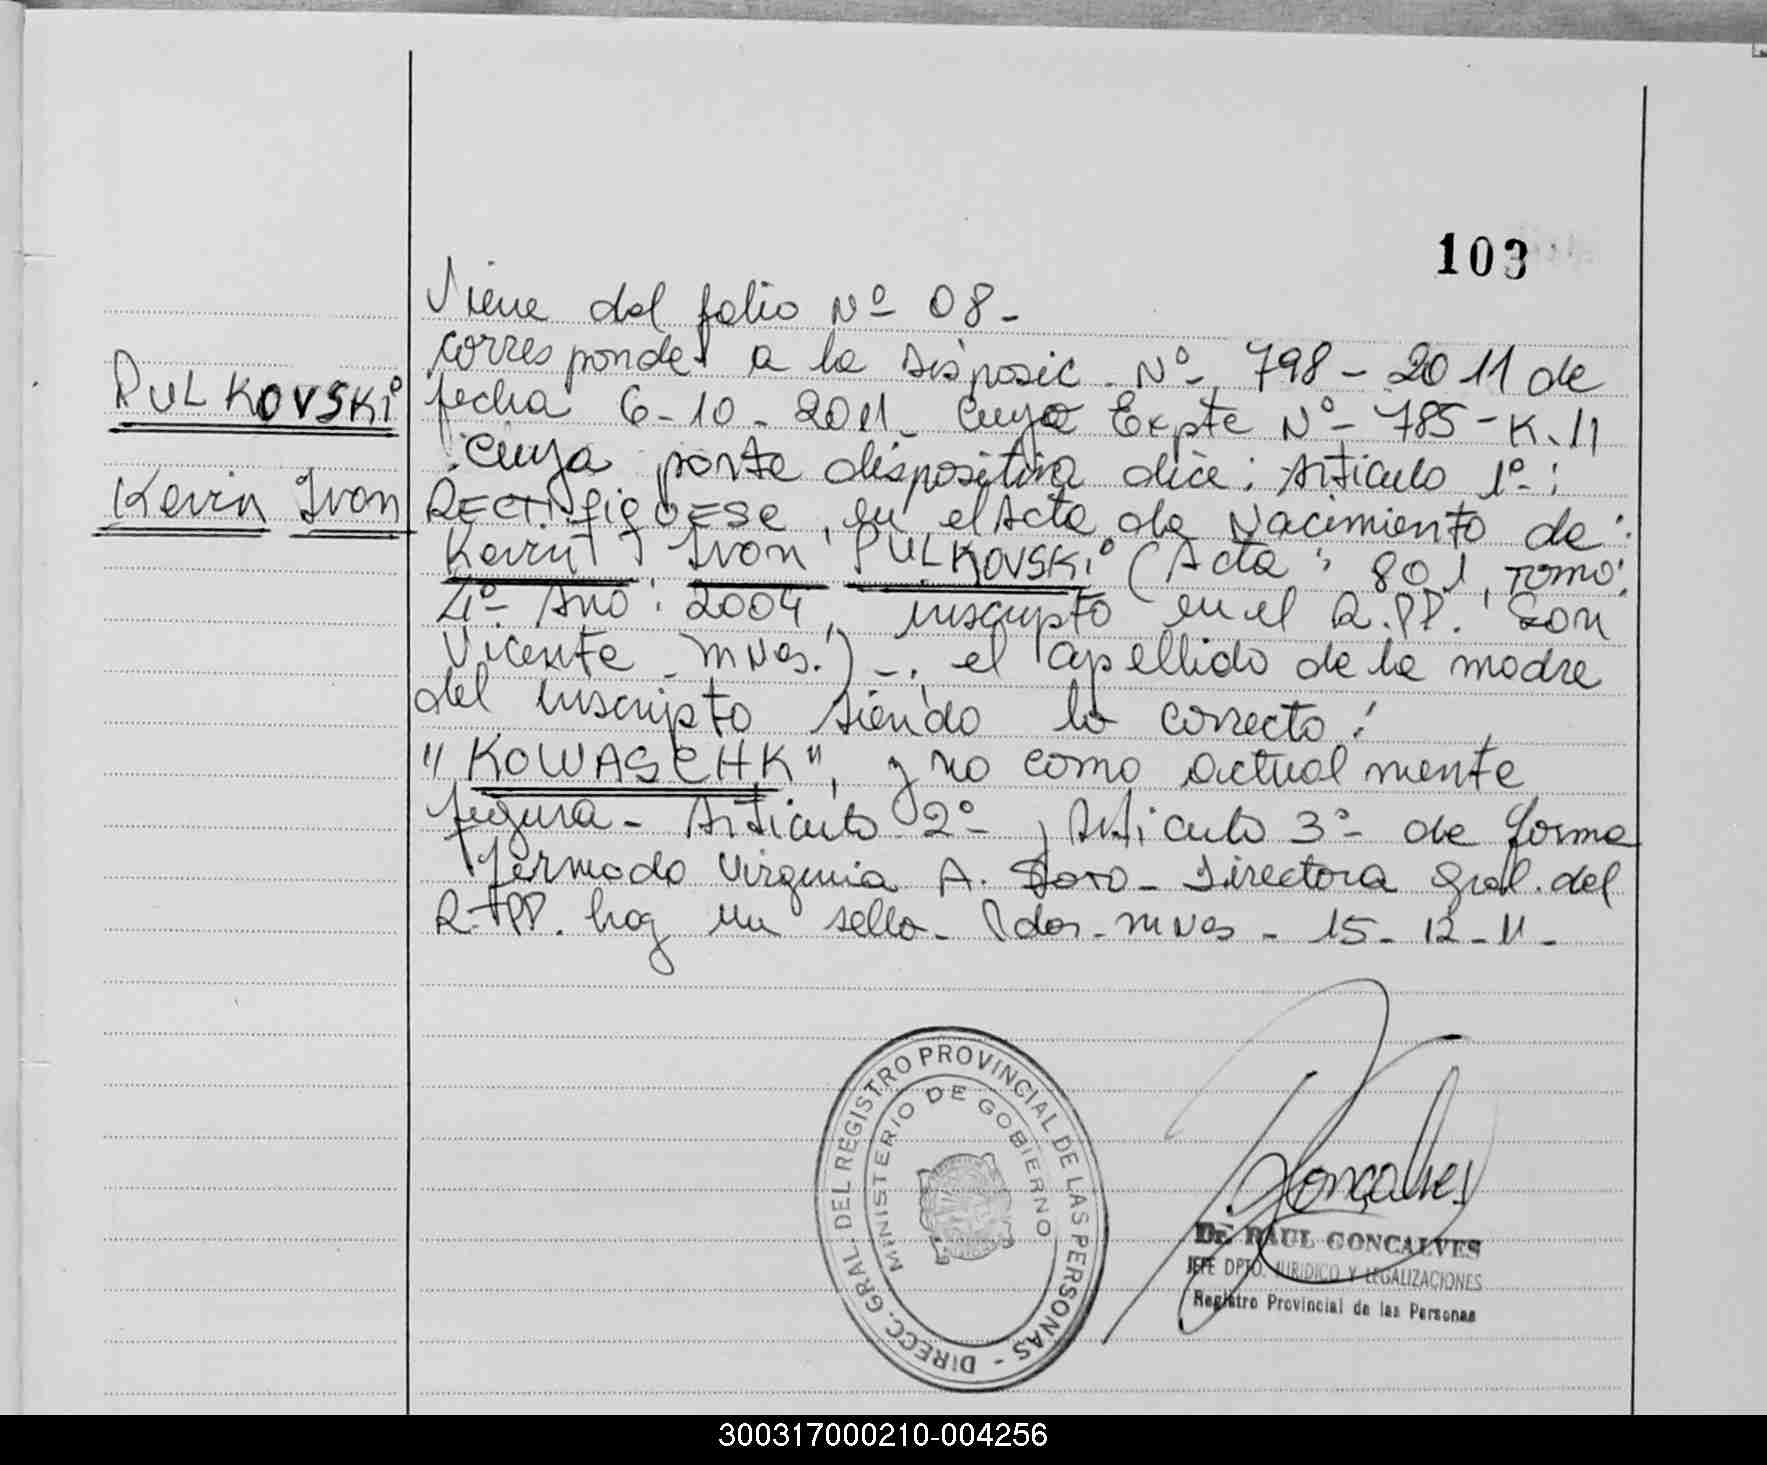 103
Viene del folio Nº 08-
corresponde a la disposic. Nº- 798-2011 de
PULKOVSKi
fecha 6-10-2011- cuyo Expte Nº- 785-K-11
cuya parte dispositiva dice: Artículo 1º-:
Kevin Ivan
RECTifiqUESE, en el Acta de Nacimiento de:
Kevin Ivan PULKOVSKi (Acta: 801, Tomo:
4º- Año: 2004, inscripto en el R.PP. San
Vicente - mnes.)-. el apellido de la madre
del inscripto siendo lo correcto:
"KOWASCHK", y no como actualmente
figura- Artículo 2º-, Artículo 3º- de forma
firmado Virginia A. Directora Gral. del
R.PP. hay un sello- Pdas-mnes - 15-12-11-
DIRECC. GRAL. DEL REGISTRO PROVINCIAL DE LAS PERSONAS -
MINISTERIO DE GOBIERNO
Goncalves
Dr. RAUL GONCALVES
JEFE DPTO. JURIDICO Y LEGALIZACIONES
Registro Provincial de las Personas
300317000210-004256